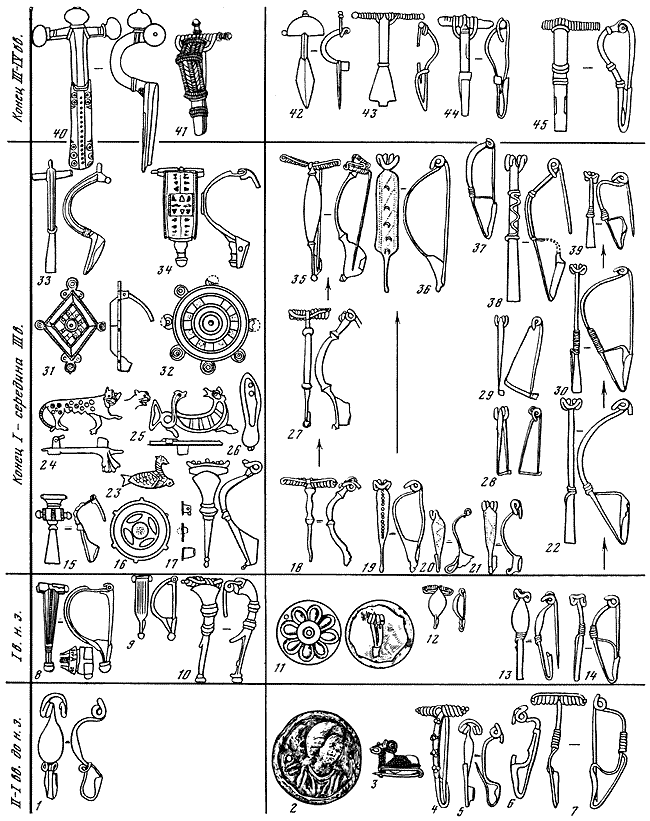 Конец III-IV вв.
40
41
42
43
44
45
Конец I – середина III в.
33
34
35
36
37
38
39
31
32
27
29
30
24
25
26
28
23
22
15
16
17
18
19
20
21
I в. н. э.
8
9
10
11
12
13
14
II-I вв. до н. э.
1
2
3
4
5
6
7